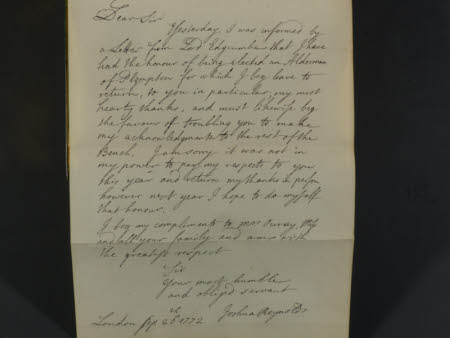 Dear Sir
Yesterday I was informed by
a Letter from Lord Edgcumbe that I have
had the honour of being elected an Alderman
of Plympton for which I beg leave to
return, to you in particular, my most
hearty thanks, and must likewise beg
the favour of troubling you to make
my acknowledgments to the rest of the
Bench. I am sorry it was not in
my power to pay my respects to you
this year and return my thanks in person
however next year I hope to do myself
that honour.
I beg my compliments to Mrs
and all your family and am with
the greatest respect
Sir
Your most humble
and obliged servant
London 1772 Joshua Reynolds